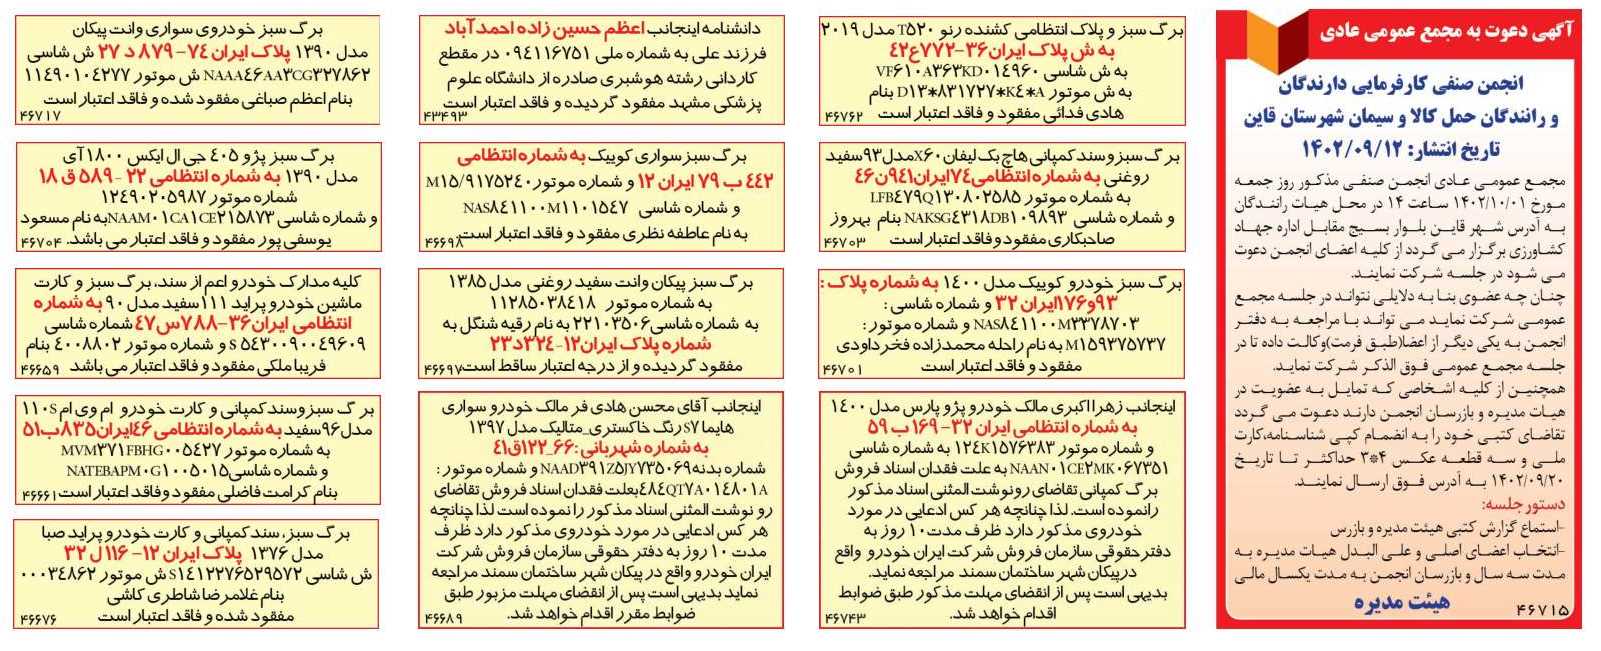 آگهی دعوت به مجمع عمومی عادی
انجمن صنفی کارفرمایی دارندگان
و رانندگان حمل کالا و سیمان شهرستان قاین
تاریخ انتشار: ۱۴۰۲/۰۹/۱۲
مجمع عمومی عادی انجمن صنفی مذکور روز جمعه
مورخ ۱۴۰۲/۱۰/۰۱ ساعت ۱۴ در محل هیات رانندگان
به آدرس شهر قاین بلوار بسیج مقابل اداره جهاد
کشاورزی برگزار می گردد از کلیه اعضای انجمن دعوت
می شود در جلسه شرکت نمایند.
چنان چه عضوی بنا به دلایلی نتواند در جلسه مجمع
عمومی شرکت نماید می تواند با مراجعه به دفتر
انجمن به یکی دیگر از اعضا(طبق فرمت)وکالت داده تا در
جلسه مجمع عمومی فوق الذکر شرکت نماید.
همچنین از کلیه اشخاصی که تمایل به عضویت در
هیات مدیره و بازرسان انجمن دارند دعوت می گردد
تقاضای کتبی خود را به انضمام کپی شناسنامه،کارت
ملی و سه قطعه عکس ۴*۳ حداکثر تا تاریخ
۱۴۰۲/۰۹/۲۰ به آدرس فوق ارسال نمایند.
دستور جلسه:
-استماع گزارش کتبی هیئت مدیره و بازرس
-انتخاب اعضای اصلی و علی البدل هیات مدیره به
مدت سه سال و بازرسان انجمن به مدت یکسال مالی
هیئت مدیره
۴۶۷۱۵
برگ سبز و پلاک انتظامی کشنده رنو T۵۲۰ مدل ۲۰۱۹
به ش پلاک ایران۳۶-۷۷۲ع۴۲
به ش شاسی VF۶۱۰A۳۶۳KD۰۱۴۹۶۰
به ش موتور D۱۳*۸۳۱۷۲۷*K۴*A بنام
هادی فدائی مفقود و فاقد اعتبار است
۴۶۷۶۲
برگ سبزوسند کمپانی هاچ بک لیفان X۶۰مدل۹۳سفید
روغنی به شماره انتظامی۷۴ایران۹۴۱ن۴۶
به شماره موتور LFB۴۷۹Q۱۳۰۸۰۲۵۸۵
و شماره شاسی NAKSG۴۳۱۸DB۱۰۹۸۹۳ بنام بهروز
صاحبکاری مفقودوفاقد اعتبار است
۴۶۷۰۳
برگ سبز خودرو کوییک مدل ۱۴۰۰ به شماره پلاک :
۹۳و۱۷۶ایران ۳۲ و شماره شاسی :
NAS۸۴۱۱۰۰M۳۳۷۸۷۰۳ و شماره موتور :
M۱۵۹۳۷۵۷۳۷ به نام راحله محمدزاده فخرداودی
مفقود و فاقد اعتبار است
۴۶۷۰۱
اینجانب زهرا اکبری مالک خودرو پژو پارس مدل ۱۴۰۰
به شماره انتظامی ایران ۳۲- ۱۶۹ب ۵۹
و شماره موتور ۱۲۴K۱۵۷۶۳۸۳ و شماره شاسی
NAAN۰۱CE۲MK۰۶۷۳۵۱ به علت فقدان اسناد فروش
برگ کمپانی تقاضای رونوشت المثنی اسناد مذکور
رانموده است. لذا چنانچه هر کس ادعایی در مورد
خودروی مذکور دارد ظرف مدت۱۰ روز به
دفترحقوقی سازمان فروش شرکت ایران خودرو واقع
درپیکان شهر ساختمان سمند مراجعه نماید.
بدیهی است پس از انقضای مهلت مذکور طبق ضوابط
اقدام خواهد شد.
۴۶۷۴۳
دانشنامه اینجانب اعظم حسین زاده احمدآباد
فرزند علی به شماره ملی ۰۹۴۱۱۶۷۵۱ در مقطع
کاردانی رشته هوشبری صادره از دانشگاه علوم
پزشکی مشهد مفقود گردیده و فاقد اعتبار است
۴۳۴۹۳
برگ سبزسواری کوییک به شماره انتظامی
۴۴۲ ب ۷۹ ایران ۱۲ و شماره موتورM۱۵/۹۱۷۵۲۴۰
و شماره شاسی NAS۸۴۱۱۰۰M۱۱۰۱۵۴۷
به نام عاطفه نظری مفقود وفاقد اعتبار است
۴۶۶۹۸
برگ سبز پیکان وانت سفید روغنی مدل ۱۳۸۵
به شماره موتور ۱۱۲۸۵۰۳۸۴۱۸
به شماره شاسی۲۲۱۰۳۵۰۶ به نام رقیه شنگل به
شماره پلاک ایران۱۲-۳۲۴د۲۳
مفقود گردیده و از درجه اعتبار ساقط است
۴۶۶۹۷
اینجانب آقای محسن هادی فر مالک خودرو سواری
هایما S۷ رنگ خاکستری_متالیک مدل ۱۳۹۷
به شماره شهربانی:۶۶_۱۲۲ق۴۱
شماره بدنه NAAD۳۹۱Z۵JY۷۳۵۰۶۹ و شماره موتور :
۴۸۴QT۷A۰۱۴۸۰۱Aبعلت فقدان اسناد فروش تقاضای
رو نوشت المثنی اسناد مذکور را نموده است لذا چنانچه
هر کس ادعایی در مورد خودروی مذکور دارد ظرف
مدت ۱۰ روز به دفتر حقوقی سازمان فروش شرکت
ایران خودرو واقع در پیکان شهر ساختمان سمند مراجعه
نماید بدیهی است پس از انقضای مهلت مزبور طبق
ضوابط مقرر اقدام خواهد شد.
۴۶۶۸۹
برگ سبز خودروی سواری وانت پیکان
مدل ۱۳۹۰ پلاک ایران ۷۴- ۸۷۹ د ۲۷ ش شاسی
NAAA۴۶AA۳CG۳۲۷۸۶۲ ش موتور ۱۱۴۹۰۱۰۴۲۷۷
بنام اعظم صباغی مفقود شده و فاقد اعتبار است
۴۶۷۱۷
برگ سبز پژو ۴۰۵ جی ال ایکس ۱۸۰۰ آی
مدل ۱۳۹۰ به شماره انتظامی ۲۲ - ۵۸۹ ق ۱۸
شماره موتور ۱۲۴۹۰۲۰۵۹۸۷
و شماره شاسی NAAM۰۱CA۱CE۲۱۵۸۷۳به نام مسعود
یوسفی پور مفقود و فاقد اعتبار می باشد.
۴۶۷۰۴
کلیه مدارک خودرو اعم از سند، برگ سبز و کارت
ماشین خودرو پراید ۱۱۱سفید مدل ۹۰ به شماره
انتظامی ایران۳۶-۷۸۸س۴۷شماره شاسی
S ۵۴۳۰۰۹۰۰۴۹۶۰۹ و شماره موتور ۴۰۰۸۸۰۲ بنام
فریبا ملکی مفقود و فاقد اعتبار می باشد
۴۶۶۵۹
برگ سبزوسند کمپانی و کارت خودرو ام وی ام ۱۱۰S
مدل۹۶سفید به شماره انتظامی ۴۶ایران۸۳۵ب۵۱
به شماره موتور MVM۳۷۱FBHG۰۰۵۴۲۷
و شماره شاسی NATEBAPM۰G۱۰۰۵۰۱۵
بنام کرامت فاضلی مفقود وفاقد اعتبار است
۴۶۶۶۱
برگ سبز، سند کمپانی و کارت خودرو پراید صبا
مدل ۱۳۷۶ پلاک ایران ۱۲- ۱۱۶ل ۳۲
ش شاسی S۱۴۱۲۲۷۶۵۲۹۵۷۲ ش موتور ۰۰۰۳۴۸۶۲
بنام غلامرضا شاطری کاشی
مفقود شده و فاقد اعتبار است
۴۶۶۷۶